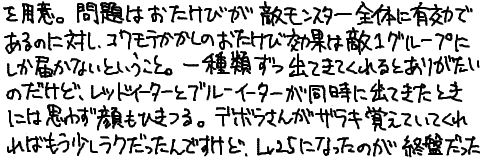 を用意。問題はおたけびが敵モンスター全体に有効で
あるのに対し、コウモリかかしのおたけび効果は敵1グループに
しか届かないということ。一種類ずつ出てきてくれるとありがたい
のだけど、レッドイーターとブルーイーターが同時に出てきたとき
には思わず顔もひきつる。デボラさんがザラキ覚えていてくれ
ればもう少しラクだったんですけど、Lv.25になったのが終盤だった